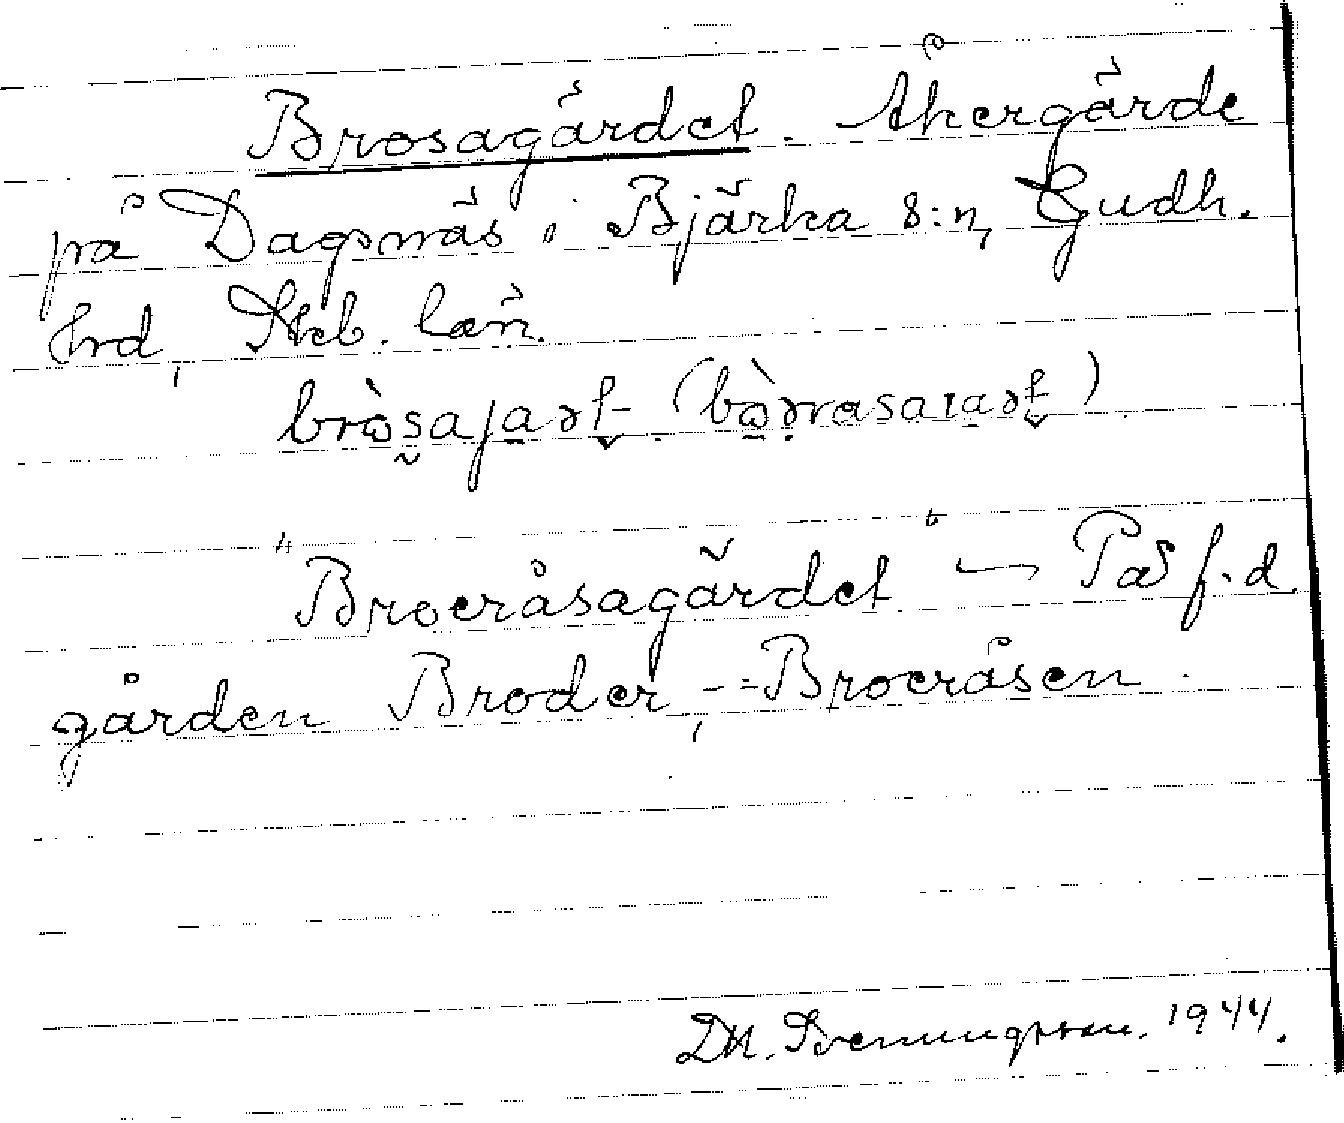 Brosagärdet. Åkergärde
på Dagsnäs i Bjärka s:n, Gudh.
hrd, Skb. län.

"Broeråsagärdet" — På f.d.
gården Broder, -=Broeråsen.
D.H. Svenningsson. 1944.